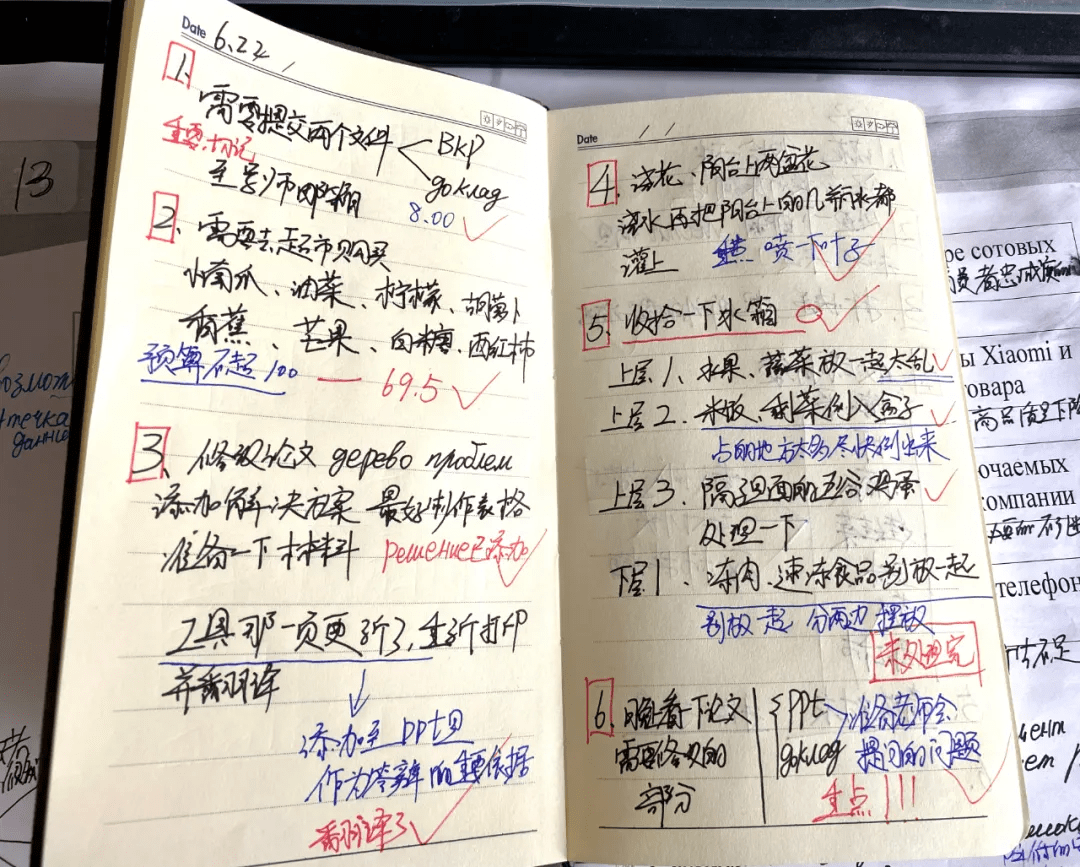 Date 6.24
1.
需要提交两个文科
BKP
доклад
重要,切记
至导师邮箱
8.00
2.
需要去超市购买
小南瓜、油菜、柠檬、胡萝卜
香蕉、芒果、白糖、西红柿
预算不超100 — 69.5
3.
修改论文 дерево проблем
添加解决方案 最好制作表格
准备一下材料 решение已添加
工具那一页更新了,重新打印
并翻译
添加至PPT里
作为答辩的重要依据
翻译了
Date
4.
浇花、阳台上两盆花
浇水再把阳台上的几瓶水都
灌上
重点 喷一下叶子
5.
收拾一下冰箱
上层1、水果、蔬菜放一起太乱
上层2、米饭、剩菜倒入盒子
占的地方太多尽快倒出来
上层3、隔子里面的五谷鸡蛋
处理一下
下层1、冻肉、速冻食品别放一起
别放一起 分两边摆放
未处理完
6.
晚看一下论文
需要修改的
部分
PPt
доклад
准备老师会
提问的问题
重点!!!
13
ре сотовых
ы Xiaomi и
овара
очаемых
омпании
телефон